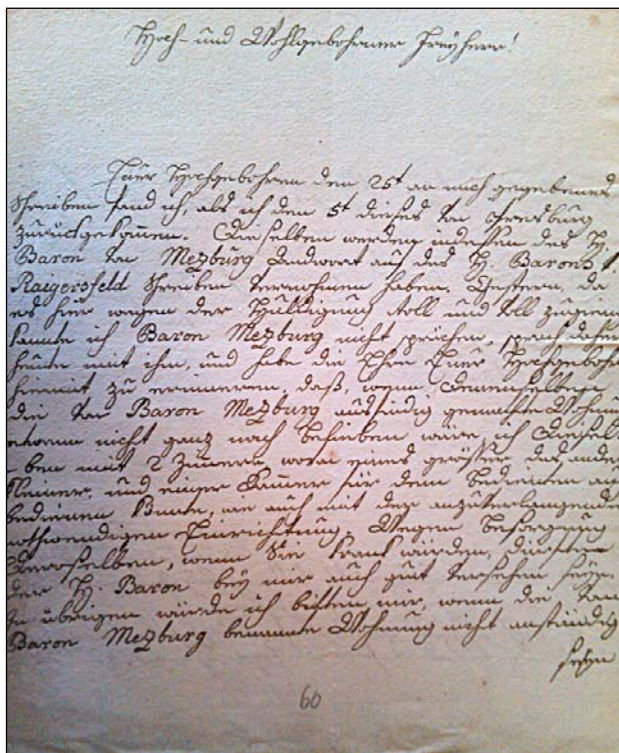 Hoch- und Wohlgebohrner Freyherr!
Euer Hochgebohren den 25t an mich gegebenes
Schreiben fand ich, als ich den 5t dieses von Presburg
zurückgekommen. Dieselben werden indessen des H.
Baron von Mezburg Andwort auf das H. Barons v.
Raigersfeld Schreiben vernohmen haben. Gestern, da
es hier wegen der Huldigung voll und toll zugieng
konnte ich Baron Mezburg nicht sprächen, sprach daher
heute mit ihm, und habe die Ehre Euer Hochgebohr
hiemit zu erinneren, daß, wenn Denenselben
die von Baron Mezburg ausfindig gemachte Wohnung
etwann nicht ganz nach belieben wäre, ich Diesel-
ben mit 2 Zimmern, wovon eines grösser das ander
kleiner, und einer Kammer für dem bedienten auf
bedienen könnte, wo auch mit der anzuverlangenden
nothwendigen Einrichtung. Wegen besorgung
Derselben, wenn Sie krank würden, dürften
der H. Baron bey mir auch gut versehen seyn.
In übrigen würde ich bitten mir, wenn die von
Baron Mezburg benannte Wohnung nicht anständig
seyn
60